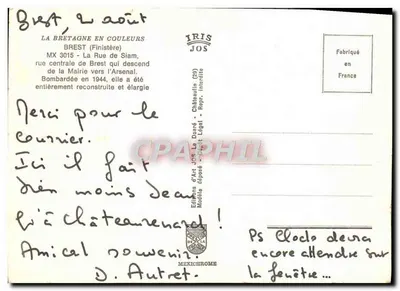 Brest, 2 août
LA BRETAGNE EN COULEURS
BREST (Finistère)
MX 3015 - La Rue de Siam,
rue centrale de Brest qui descend
de la Mairie vers l'Arsenal.
Bombardée en 1944, elle a été
entièrement reconstruite et élargie
Merci pour le
courrier.
Ici il fait
bien moins beau
qu'à Châteaurenard !
Amical souvenir.
D. Autret.
IRIS
JOS
Fabriqué
en
France
Editions d'Art JOS Le Doaré - Châteaulin (29)
Modèle déposé - Dépôt Légal - Repr. interdite
CPAPHIL
MEXICHROME
Ps Cloclo devra
encore attendre sur
la fenêtre...